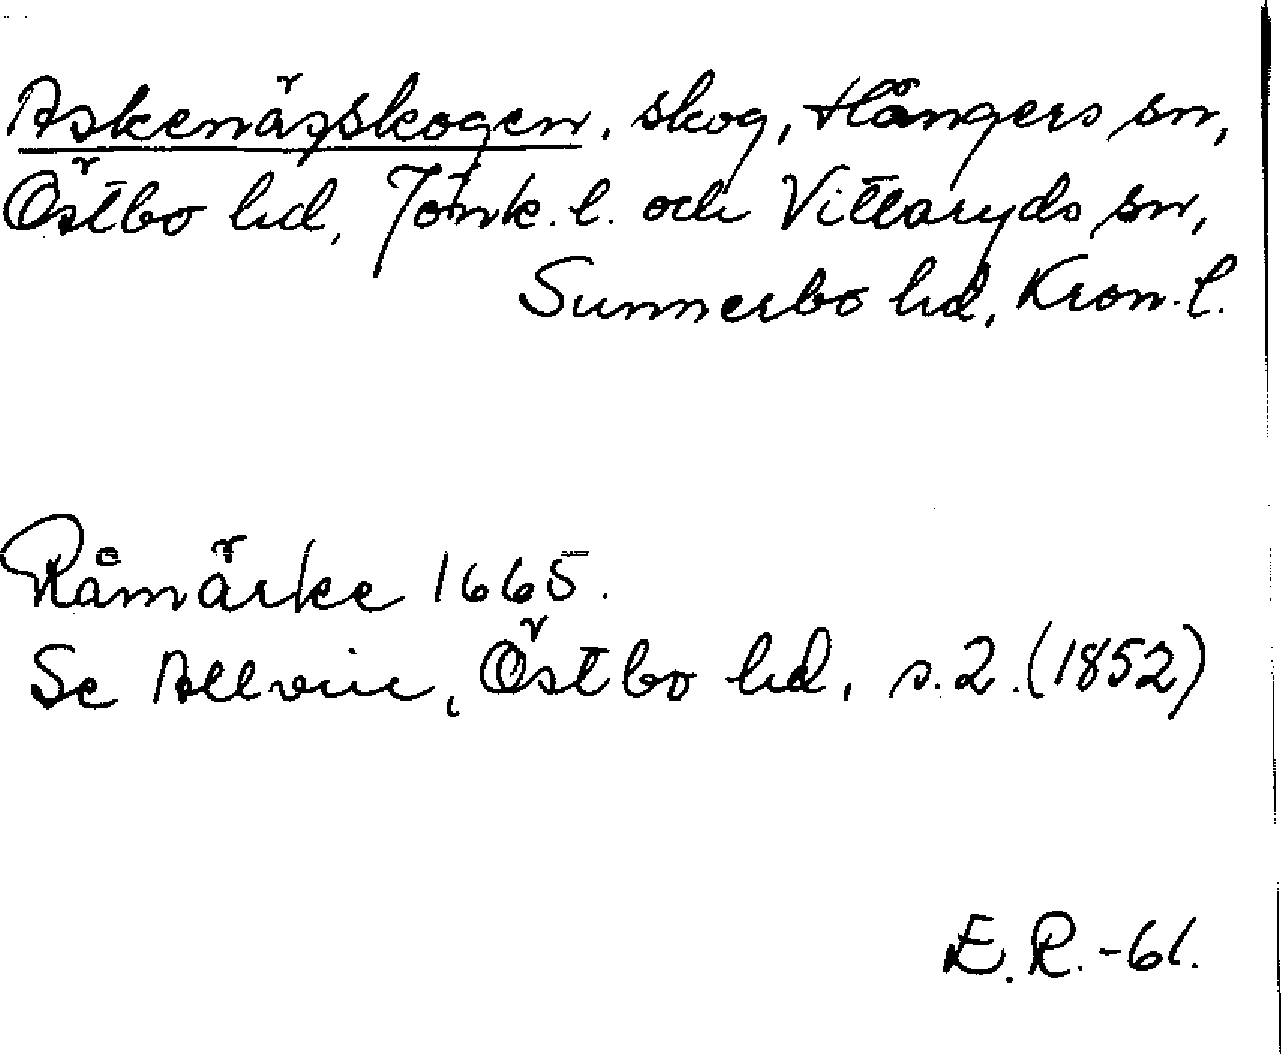 Askenässkogen, skog, Hångers sn,
Östbo hd, Jönk. l. och Vittaryds sn,
Sunnerbo hd, Kron. l.
Råmärke 1665.
Se Allvin, Östbo hd, s. 2. (1852)
E. R. -61.